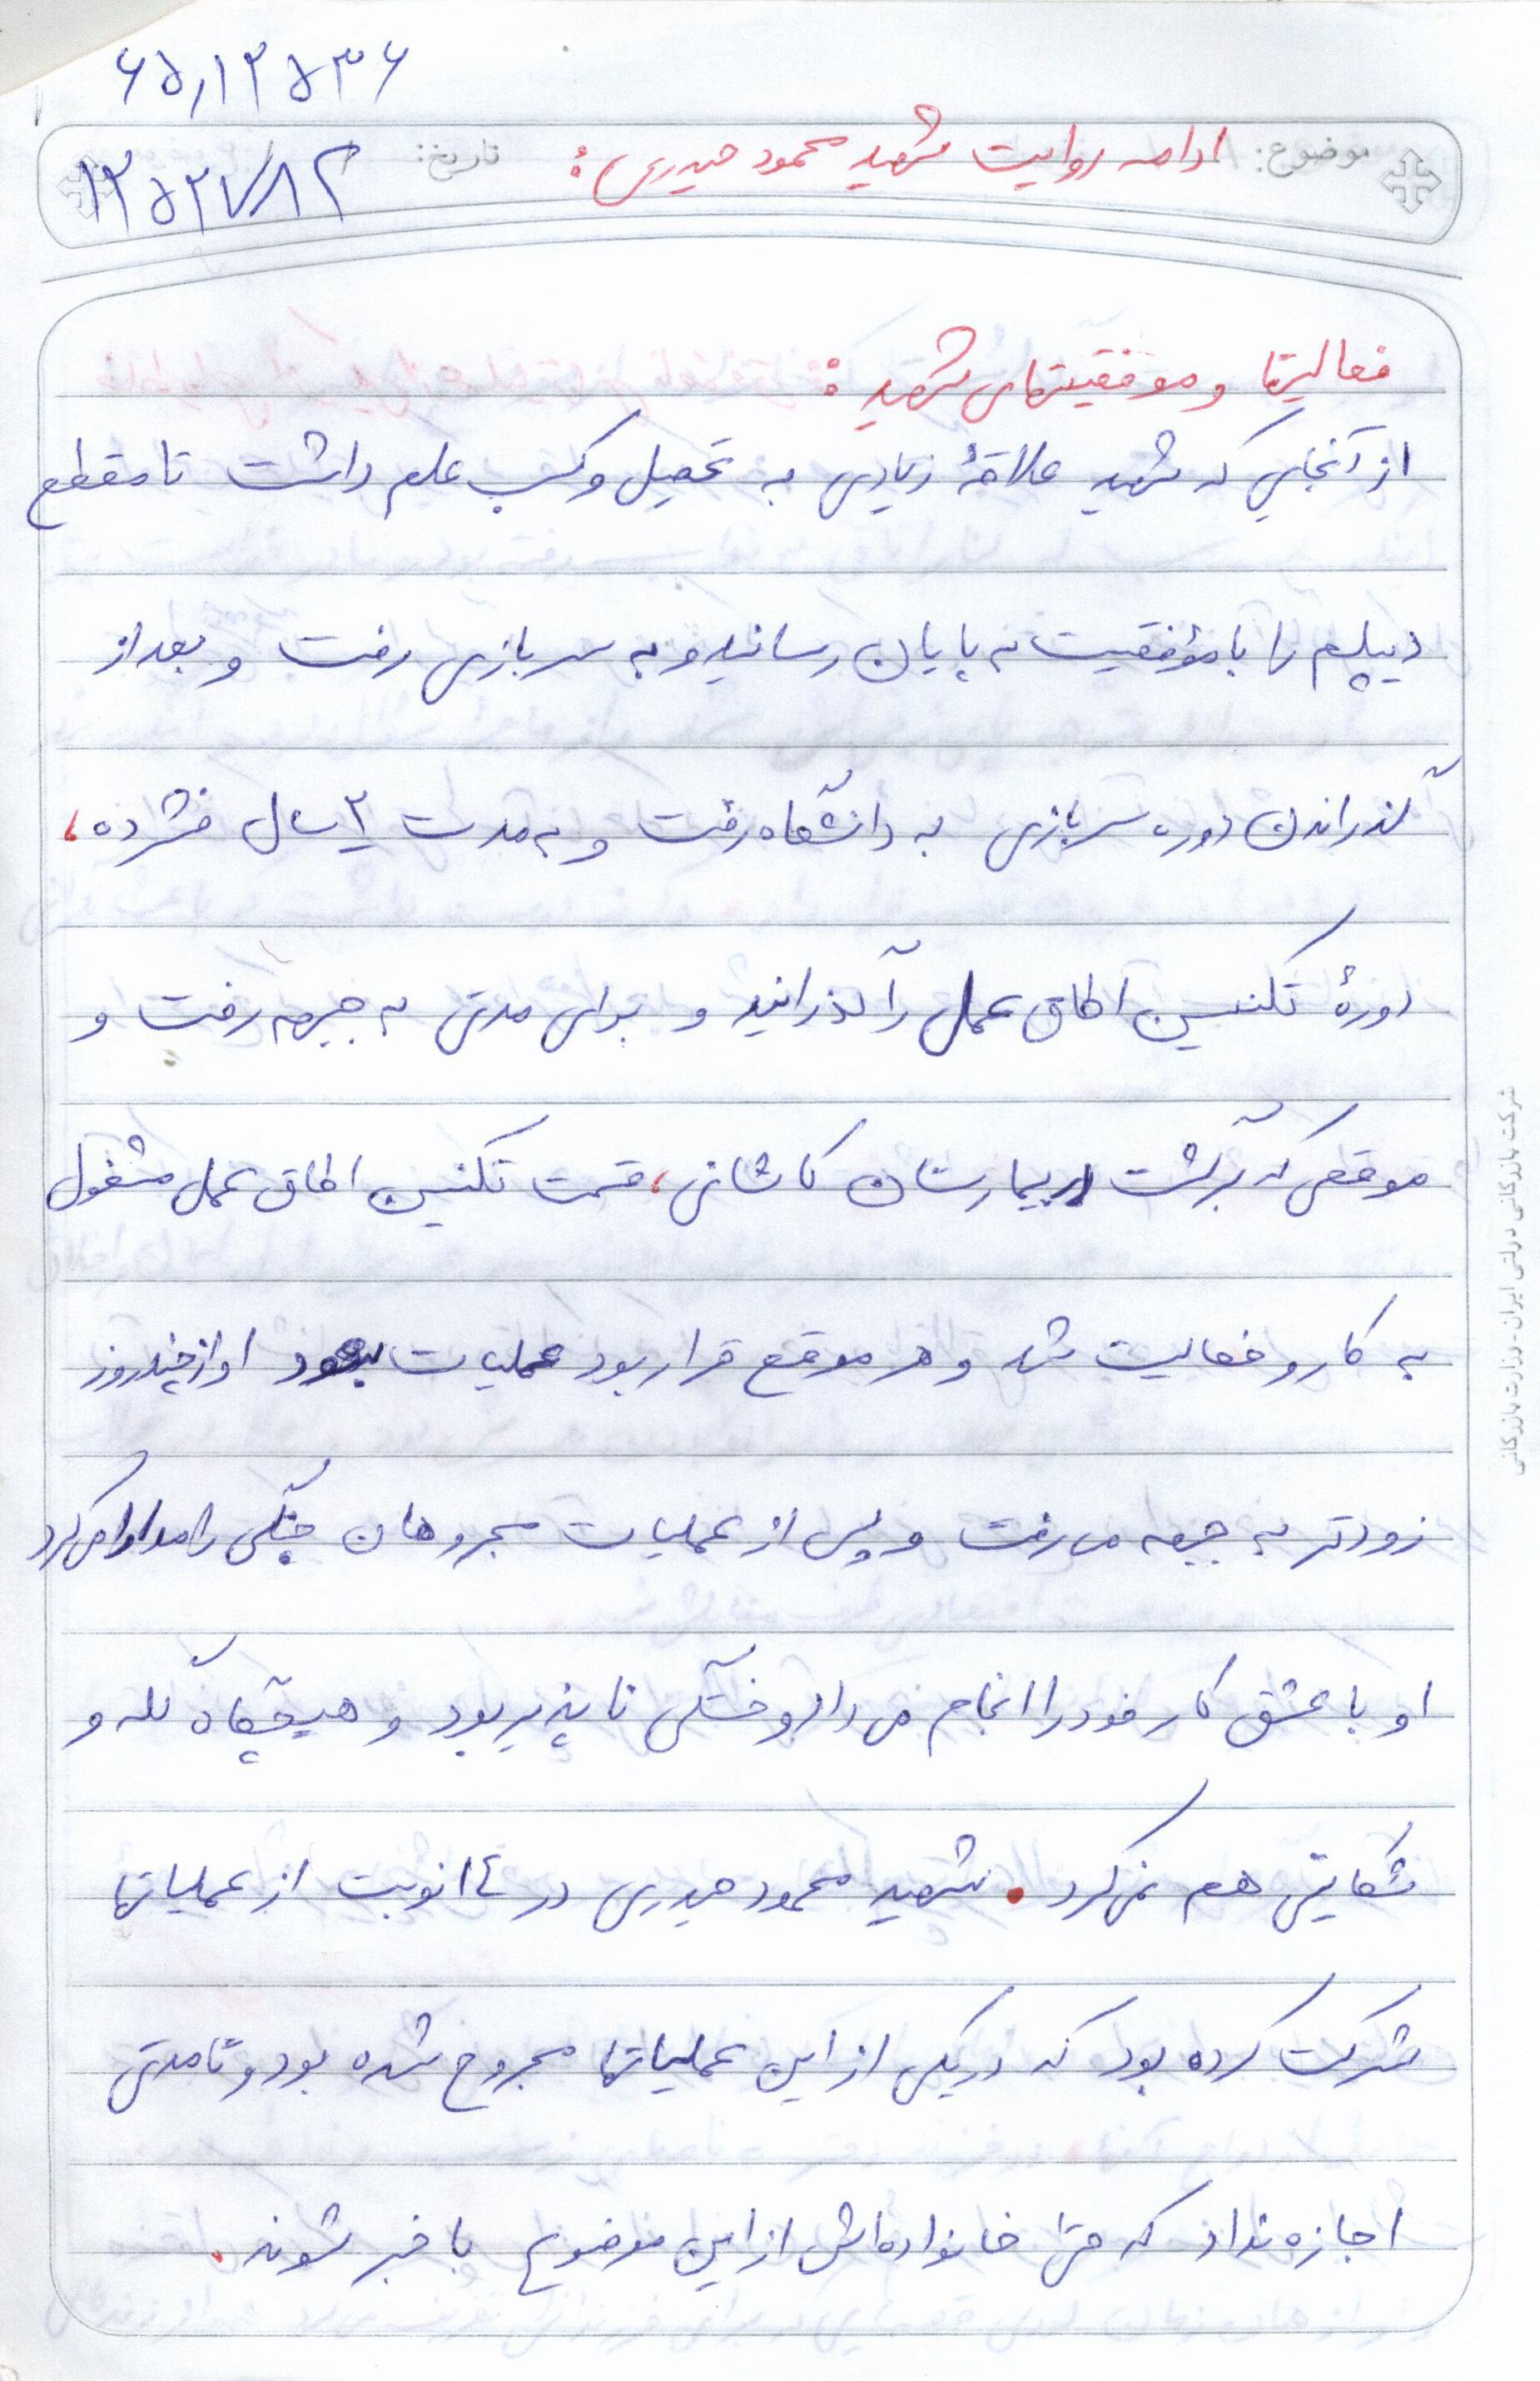 ۶۵۱۳۵۳۶
موضوع: ادامه روایت شهید محمود حیدری:
تاریخ:
فعالیتها و موفقیتهای شهید:
از آنجایی که شهید علاقهٔ زیادی به تحصیل و کسب علم داشت تا مقطع
دیپلم را با مؤفقیت به پایان رسانید و به سربازی رفت و بعد از
گذراندن دوره سربازی به دانشگاه رفت و به مدت ۲ سال فشرده،
دورهٔ تکنسین اطاق عمل را گذرانید و برای مدتی به جبهه رفت و
موقعی که برگشت در بیمارستان کاشانی، قسمت تکنسین اطاق عمل مشغول
به کار و فعالیت شد و هر موقع قرار بود عملیات بود او از چند روز
زودتر به جبهه می رفت و پس از عملیات مجروهان جنگی را مداوا می کرد
او با عشق کار خود را انجام می داد و خستگی ناپذیر بود و هیچگاه گله و
شکایتی هم نمی کرد. شهید محمود حیدری در ۱۴ نوبت از عملیاتها
شرکت کرده بود که در یکی از این عملیاتها مجروح شده بود و تا مدتی
اجازه نداد که حتی خانواده اش از این موضوع با خبر شوند.
شرکت بازرگانی دولتی ایران - وزارت بازرگانی